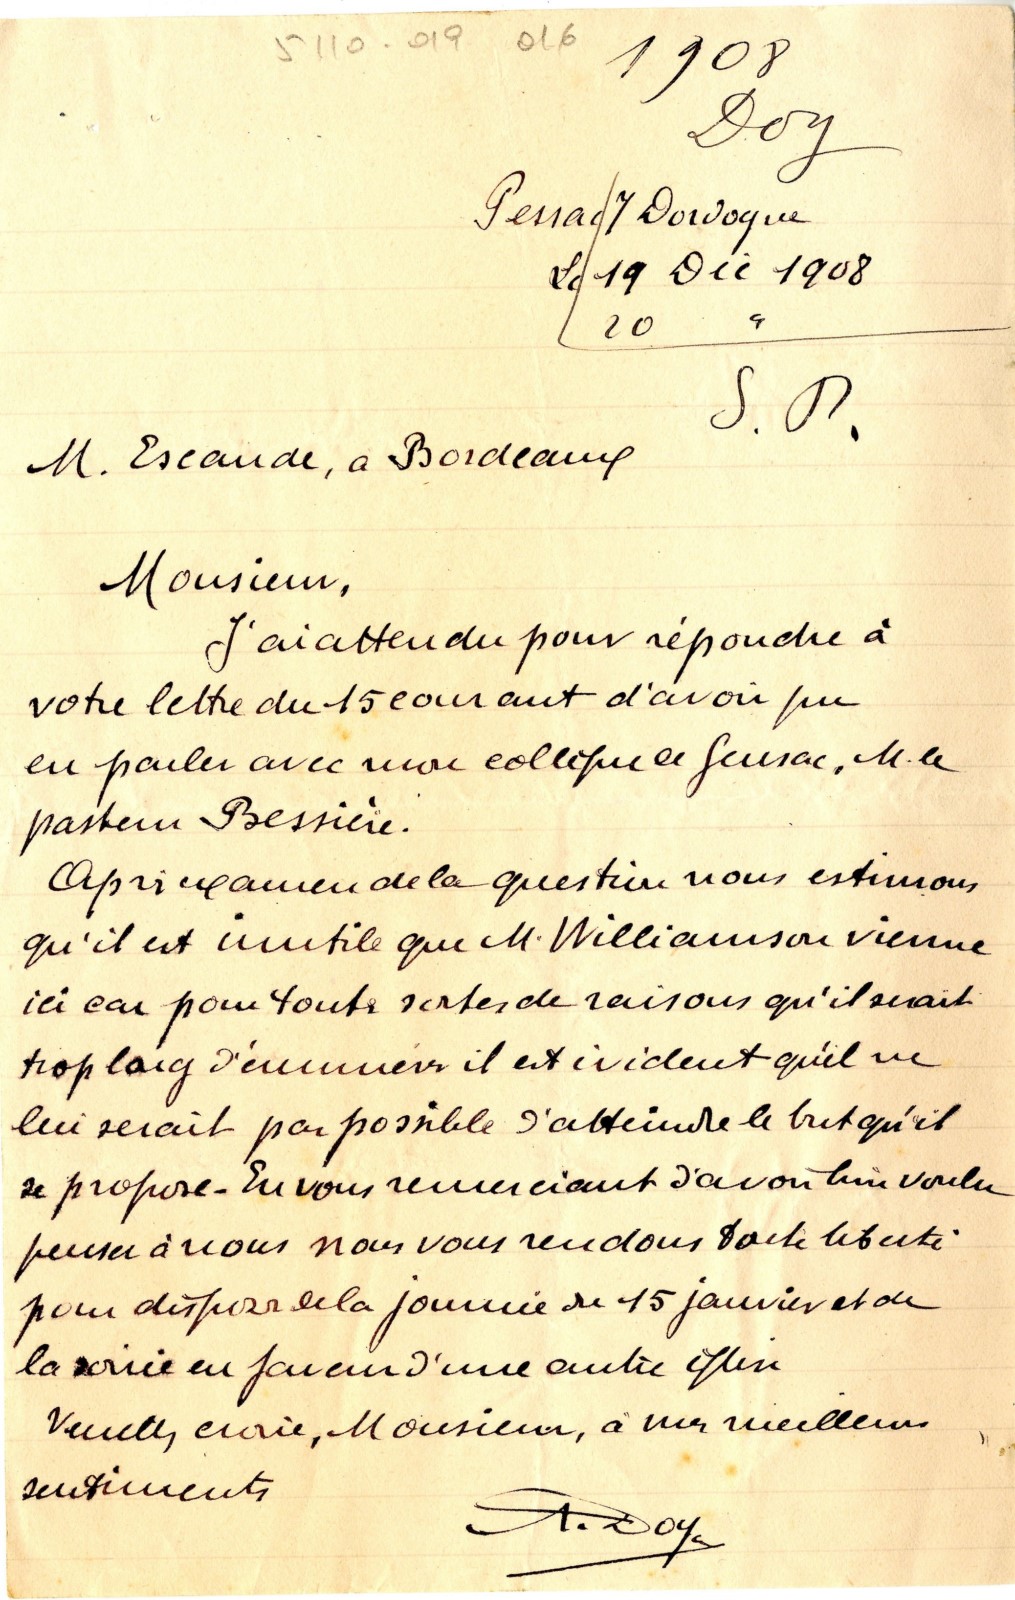 5110-019 016
1908
Doy
Pessac s/ Dordogne
Le 19 Déc 1908
20 "
S. R.
M. Escande, à Bordeaux
Monsieur,
J'ai attendu pour répondre à
votre lettre du 15 courant d'avoir pu
en parler avec mon collègue de Gensac, M. le
pasteur Bessière.
Après examen de la question nous estimons
qu'il est inutile que M. Williamson vienne
ici car pour toutes sortes de raisons qu'il serait
trop long d'énumérer il est évident qu'il ne
lui serait pas possible d'atteindre le but qu'il
se propose - En vous remerciant d'avoir bien voulu
penser à nous nous vous rendons toute liberté
pour disposer de la journée du 15 janvier et de
la soirée en faveur d'une autre église
Veuillez croire, Monsieur, à mes meilleurs
sentiments
A. Doy